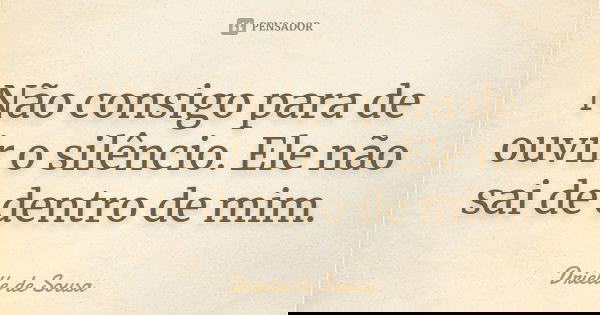 PENSADOR
Não consigo para de
ouvir o silêncio. Ele não
sai de dentro de mim.
Drielle de Sousa